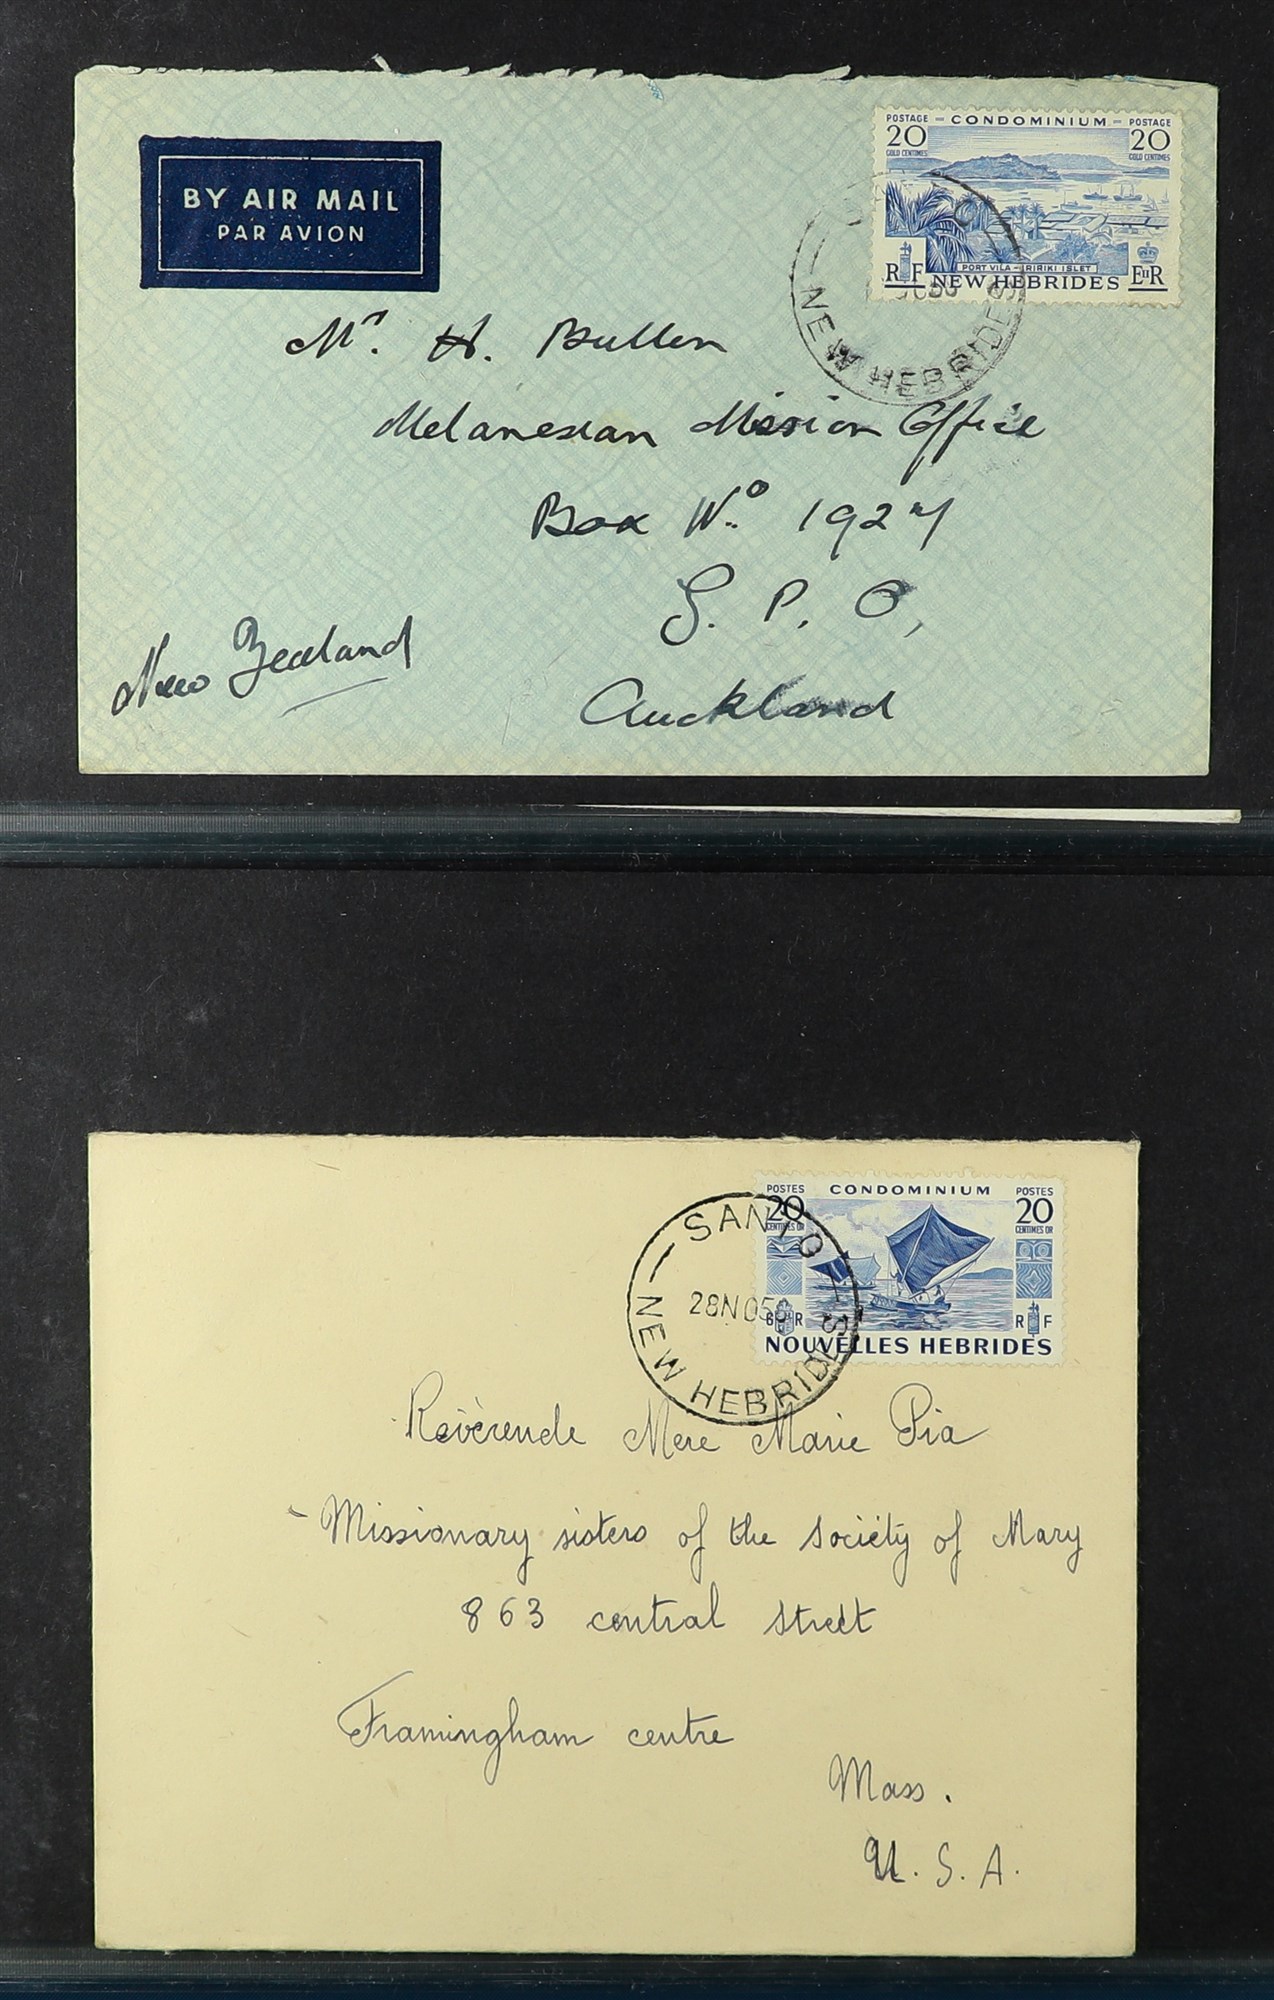 BY AIR MAIL
PAR AVION
POSTAGE - CONDOMINIUM - POSTAGE
20 20
GOLD CENTIMES GOLD CENTIMES
PORT VILA - IRIRIKI ISLET
RF NEW HEBRIDES EIIR
NEW HEBRIDES
Mr. H. Bullen
Melanesian Mission Office
Box No. 1927
G. P. O,
Auckland
New Zealand
POSTES CONDOMINIUM POSTES
20 20
CENTIMES OR CENTIMES OR
R RF
NOUVELLES HEBRIDES
SANTO
28NO5
NEW HEBRIDES
Révèrende Mere Marie Pia
Missionary sisters of the Society of Mary
863 central Street
Framingham centre
Mass.
U. S. A.